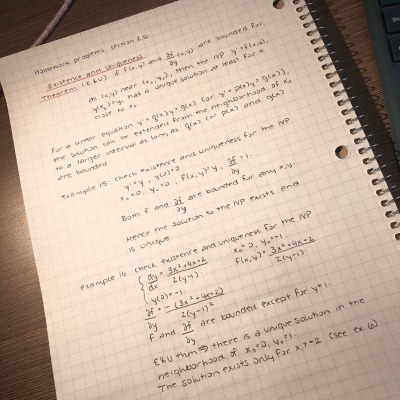 Homework problems, section 2.8
Existence and Uniqueness
Theorem (E&U) if f(x,y) and ∂f/∂y (x,y) are bounded for
all (x,y) near (x₀,y₀), then the IVP y'=f(x,y),
y(x₀)=y₀ has a unique solution at least for x
close to x₀.
For a linear equation y'+g(x)y=g(x) (or y'=p(x)y+g(x)),
the solution can be extended from the neighborhood of x₀
to a larger interval as long as g(x) (or p(x) and g(x))
are bounded.
Example 15: check existence and uniqueness for the IVP
y'=y, y(0)=0.
x₀=0, y₀=0, f(x,y)=y, ∂f/∂y=1.
Both f and ∂f/∂y are bounded for any x,y.
Hence the solution to the IVP exists and
is unique.
Example 16. check existence and uniqueness for the IVP
{ dy/dx = (3x²+4x+2)/(2(y-1)) x₀=0, y₀=-1
y(0)=-1. f(x,y)= (3x²+4x+2)/(2(y-1)).
∂f/∂y = -(3x²+4x+2)/(2(y-1)²)
f and ∂f/∂y are bounded except for y=1.
E&U thm ⇒ there is a unique solution in the
neighborhood of x₀=0, y₀=-1.
The solution exists only for x>-2 (see ex. 6)